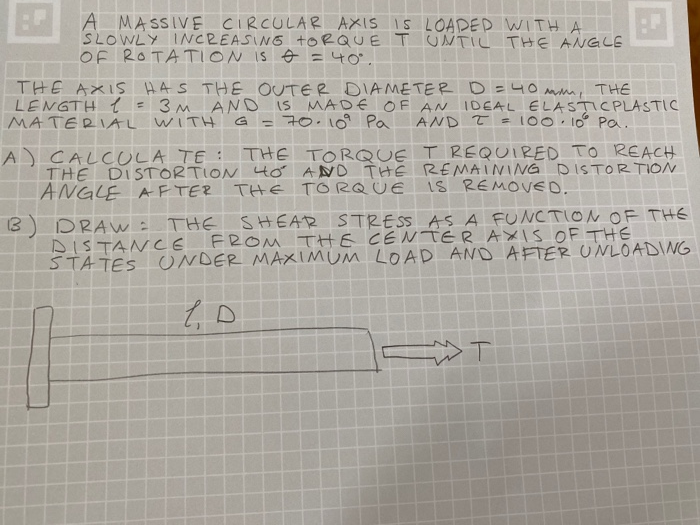 A MASSIVE CIRCULAR AXIS IS LOADED WITH A
SLOWLY INCREASING TORQUE T UNTIL THE ANGLE
OF ROTATION IS θ = 40°.
THE AXIS HAS THE OUTER DIAMETER D = 40 mm, THE
LENGTH l = 3M AND IS MADE OF AN IDEAL ELASTICPLASTIC
MATERIAL WITH G = 70·10⁹ Pa AND τ = 100·10⁶ Pa.
A) CALCULATE: THE TORQUE T REQUIRED TO REACH
THE DISTORTION 40° AND THE REMAINING DISTORTION
ANGLE AFTER THE TORQUE IS REMOVED.
B) DRAW: THE SHEAR STRESS AS A FUNCTION OF THE
DISTANCE FROM THE CENTER AXIS OF THE
STATES UNDER MAXIMUM LOAD AND AFTER UNLOADING
l, D
T